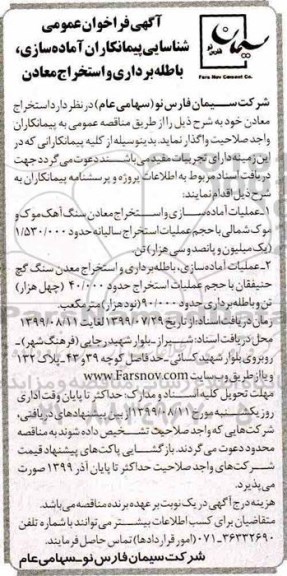 آگهی فراخوان عمومی
شناسایی پیمانکاران آماده‌سازی،
باطله‌برداری و استخراج معادن
سیمان فارس نو
Fars Nov Cement Co.
شرکت سیمان فارس نو (سهامی عام) در نظر دارد استخراج
معادن خود به شرح ذیل را از طریق مناقصه عمومی به پیمانکاران
واجد صلاحیت واگذار نماید. بدینوسیله از کلیه پیمانکارانی که در
این زمینه دارای تجربیات مفید می‌باشند دعوت می‌گردد جهت
دریافت اسناد مربوط به اطلاعات پروژه و پرسشنامه پیمانکاران به
شرح ذیل اقدام نمایند:
۱- عملیات آماده‌سازی و استخراج معادن سنگ آهک موک و
موک شمالی با حجم عملیات استخراج سالیانه حدود ۱/۵۳۰/۰۰۰
(یک میلیون و پانصد و سی هزار) تن.
۲- عملیات آماده‌سازی، باطله‌برداری و استخراج معدن سنگ گچ
حنیفقان با حجم عملیات استخراج حدود ۴۰/۰۰۰ (چهل هزار)
تن و باطله‌برداری حدود ۹۰/۰۰۰ (نود هزار) متر مکعب.
زمان دریافت اسناد: از تاریخ ۱۳۹۹/۰۷/۲۹ لغایت ۱۳۹۹/۰۸/۱۱
محل دریافت اسناد: شیراز - بلوار شهید رجایی (فرهنگ‌شهر) -
روبروی بلوار شهید کسائی - حد فاصل کوچه ۳۹ و ۴۳ - پلاک ۱۳۲
و یا از طریق وب سایت www.Farsnov.com
مهلت تحویل کلیه اسناد و مدارک: حداکثر تا پایان وقت اداری
روز یکشنبه مورخ ۱۳۹۹/۰۸/۱۱ از بین پیشنهادهای دریافتی،
شرکت‌هایی که واجد صلاحیت تشخیص داده شوند به مناقصه
محدود دعوت می‌گردند. بازگشایی پاکت‌های پیشنهاد قیمت
شرکت‌های واجد صلاحیت حداکثر تا پایان آذر ۱۳۹۹ صورت
می‌پذیرد.
هزینه درج آگهی در یک نوبت بر عهده برنده مناقصه می‌باشد.
متقاضیان برای کسب اطلاعات بیشتر می‌توانند با شماره تلفن
۳۶۳۳۲۶۹۰-۰۷۱ (امور قراردادها) تماس حاصل فرمایند.
شرکت سیمان فارس نو - سهامی عام